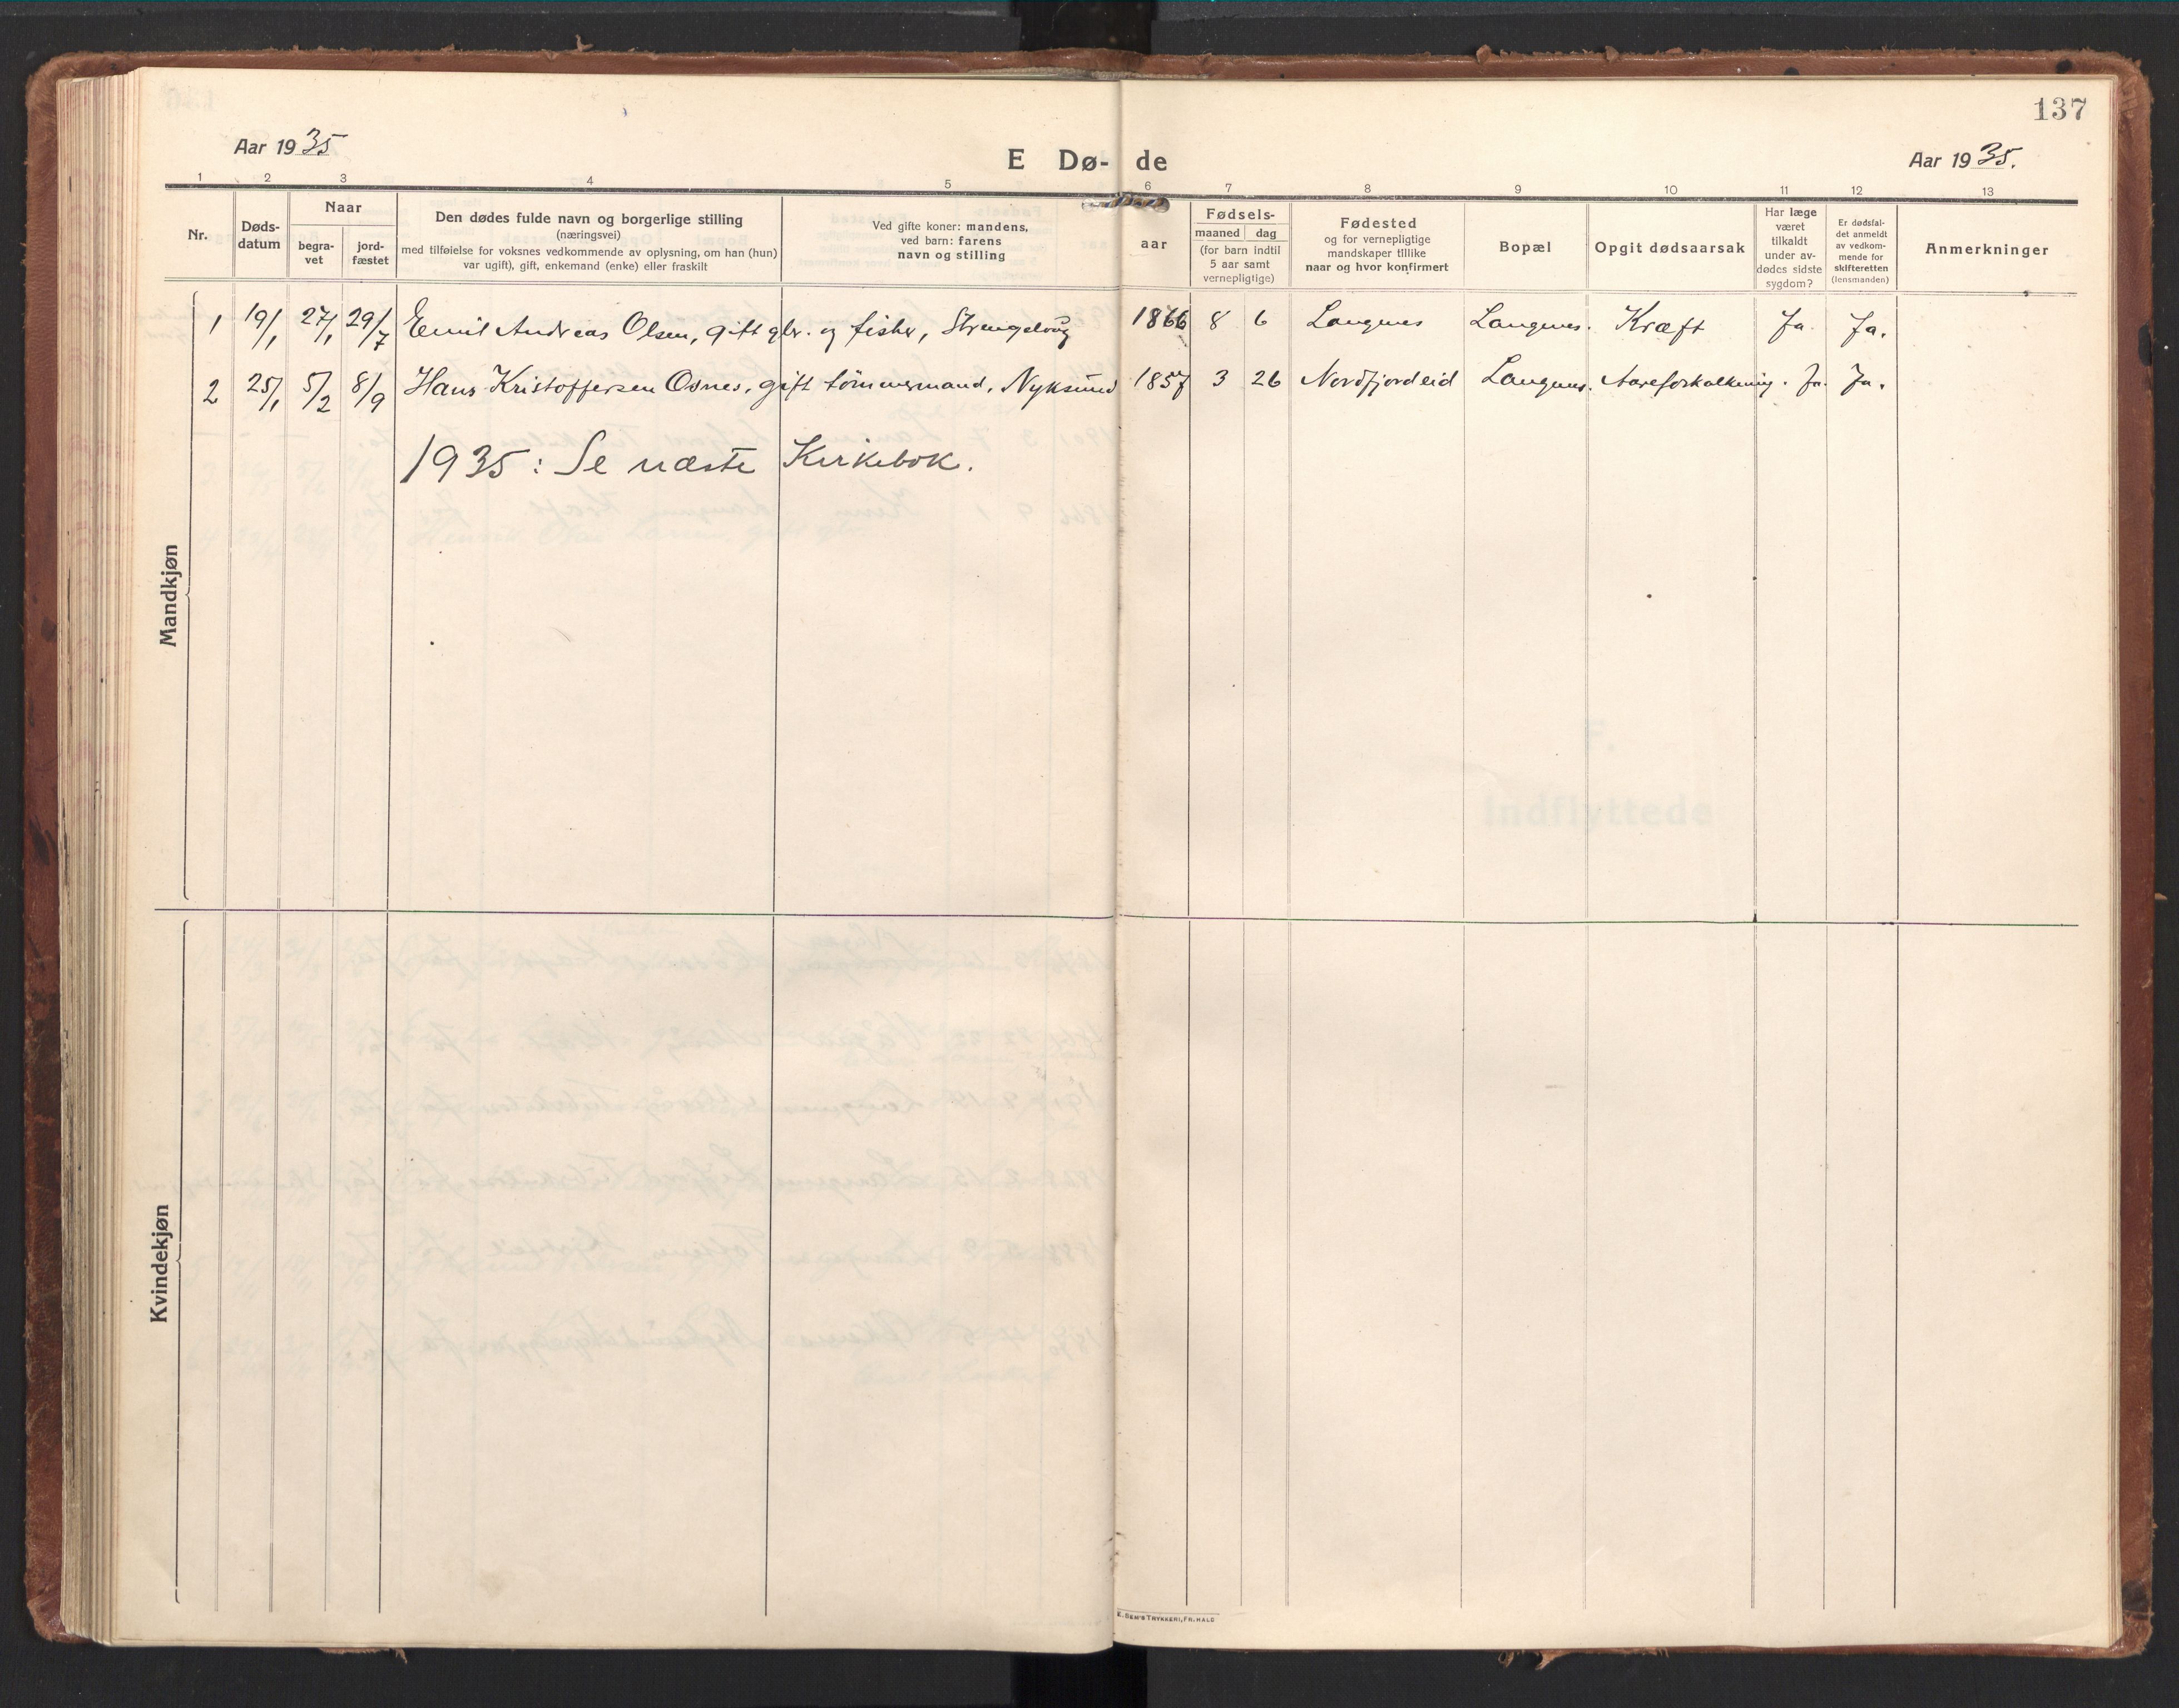 137
Aar 1935
E Dø- de
Aar 1935.
1 2 3 4 5 6 7 8 9 10 11 12 13
Nr.
Døds-
datum
Naar
begra-
vet
jord-
fæstet
Den dødes fulde navn og borgerlige stilling
(næringsvei)
med tilføielse for voksnes vedkommende av oplysning, om han (hun)
var ugift), gift, enkemand (enke) eller fraskilt
Ved gifte koner: mandens,
ved barn: farens
navn og stilling
Fødsels-
aar
maaned dag
(for barn indtil
5 aar samt
vernepligtige)
Fødested
og for vernepligtige
mandskaper tillike
naar og hvor konfirmert
Bopæl
Opgit dødsaarsak
Har læge
været
tilkaldt
under av-
dødes sidste
sygdom?
Er dødsfal-
det anmeldt
av vedkom-
mende for
skifteretten
(lensmanden)
Anmerkninger
Mandkjøn
1 19/1 27/1 29/7 Emil Andreas Olsen, gift gbr. og fisker, Strengelvåg 1866 8 6 Langenes Langenes. Kræft Ja. Ja.
2 25/1 5/2 8/9 Hans Kristoffersen Osnes, gift tømmermand, Nyksund 1857 3 26 Nordfjordeid Langenes. Aareforkalkning. Ja. Ja.
1935: Se næste Kirkebok.
Kvindekjøn
E. SEM'S TRYKKERI, FR.HALD